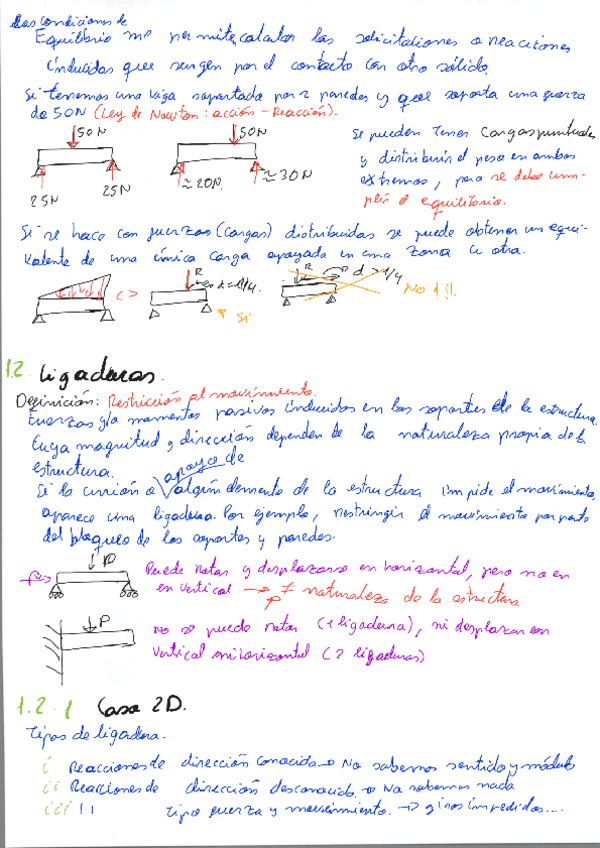 Las condiciones de
Equilibrio me permite calcular las solicitaciones o reacciones
inducidas que surgen por el contacto con otro sólido.
Si tenemos una viga soportada por 2 paredes y que soporta una fuerza
de 50N (Ley de Newton: acción-Reacción).
50N
50N
25N
25N
≈20N
≈30N
Se pueden tener cargas puntuales
y distribuir el peso en ambos
extremos, pero se debe cum-
plir el equilibrio.
Si se hace con fuerzas (cargas) distribuidas se puede obtener un equi-
valente de una única carga apoyada en una zona u otra.
R
d = 1/4.
Si
R
d > 1/4
NO !!!
1.2 Ligaduras.
Definición: Restricción al movimiento.
Fuerzas y/o momentos pasivos inducidos en los soportes de la estructura.
Cuya magnitud y dirección dependen de la naturaleza propia de la
estructura.
apoyo de
Si la unión o algún elemento de la estructura impide el movimiento,
aparece una ligadura. Por ejemplo, restringir el movimiento por parte
del bloqueo de los soportes y paredes.
P
Puede rotar y desplazarse en horizontal, pero no en
en vertical → ≠ naturaleza de la estructura
P
No se puede rotar (1 ligadura), ni desplazar en
vertical ni horizontal (2 ligaduras)
1.2.1 Caso 2D.
Tipos de ligadura.
i Reacciones de dirección conocida → No sabemos sentido y módulo
ii Reacciones de dirección desconocida. → No sabemos nada
iii 11 tipo fuerza y movimiento. → giros impedidos....